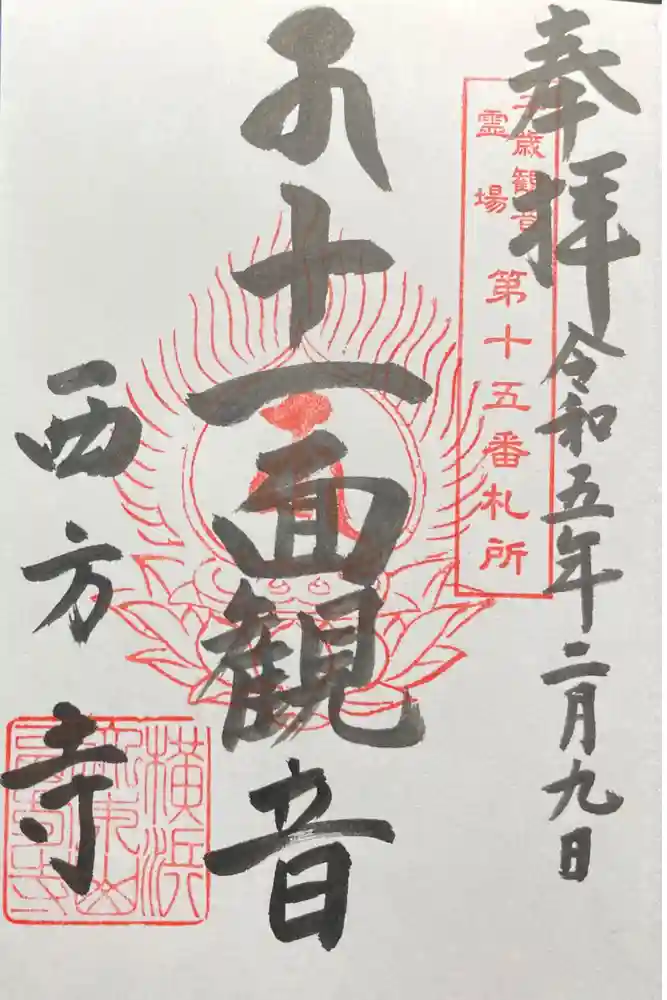 奉拝
令和五年二月九日
子歳観音
霊場
第十五番札所
十一面観音
西方寺
横浜